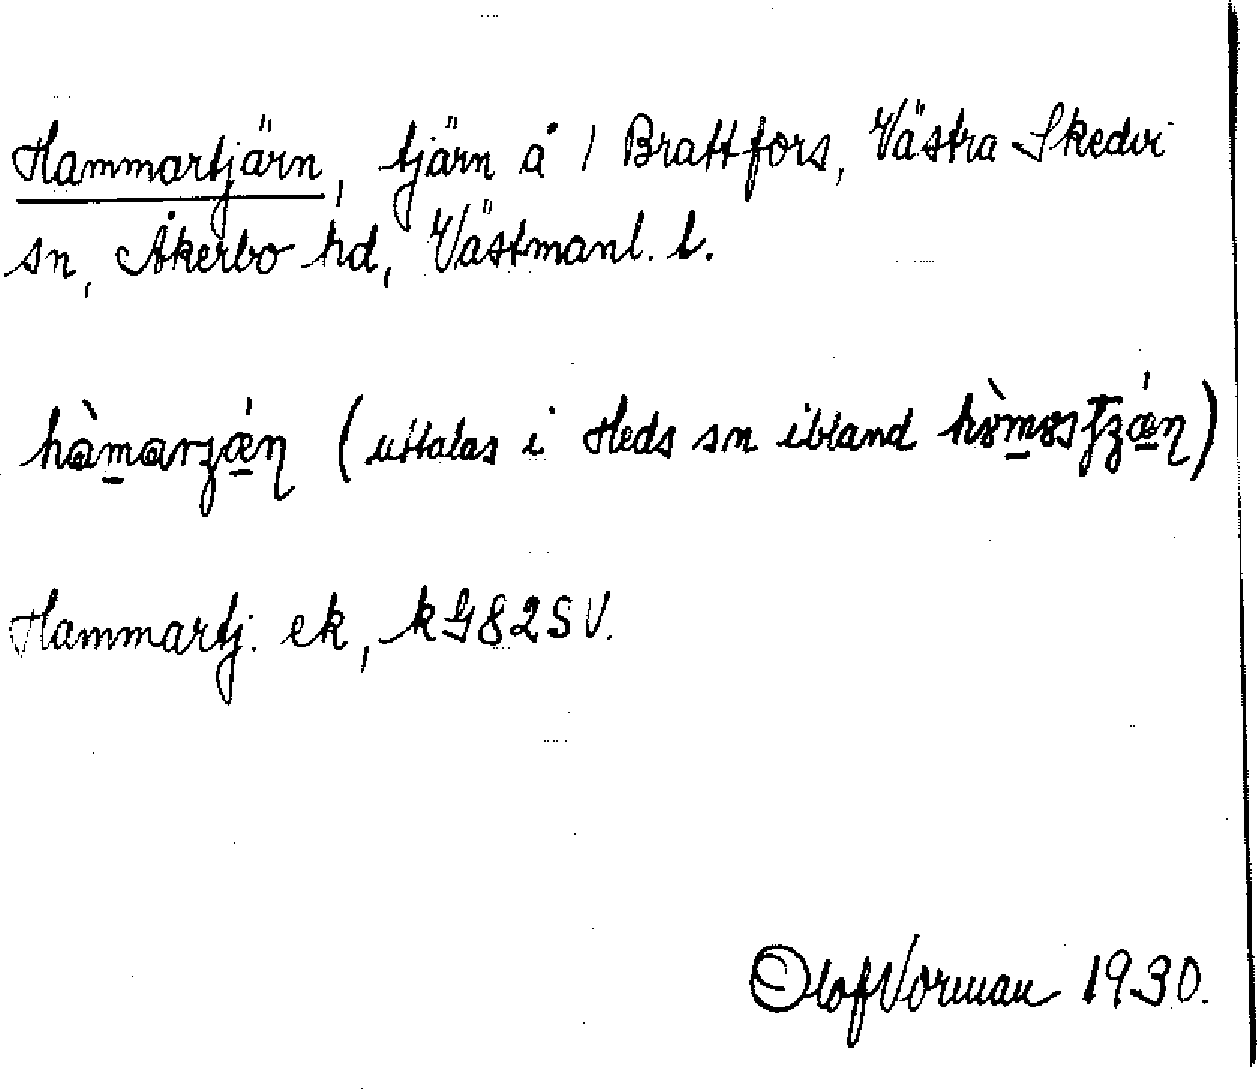 Hammartjärn, tjärn å 1 Brattfors, Västra Skedvi
sn, Åkerbo hd, Västmanl. l.
(uttalas i Heds sn ibland
Hammartj. ek, kG82SV.
Olof Vorman 1930.